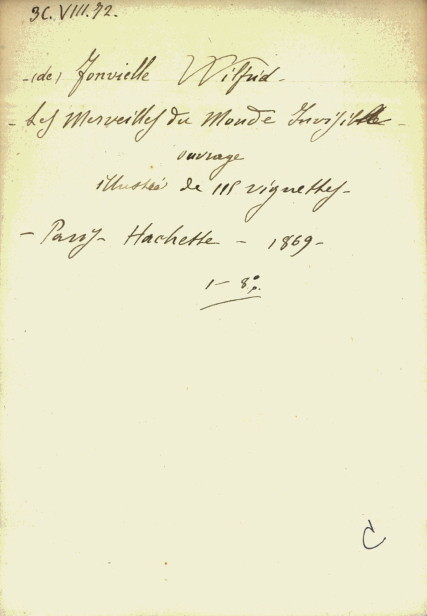 3C.VIII.72.
-(de) Fonvielle Wilfrid-
- Les Merveilles du Monde Invisible -
ouvrage
illustré de 115 vignettes-
- Paris- Hachette - 1869-
1- 8º p.
C